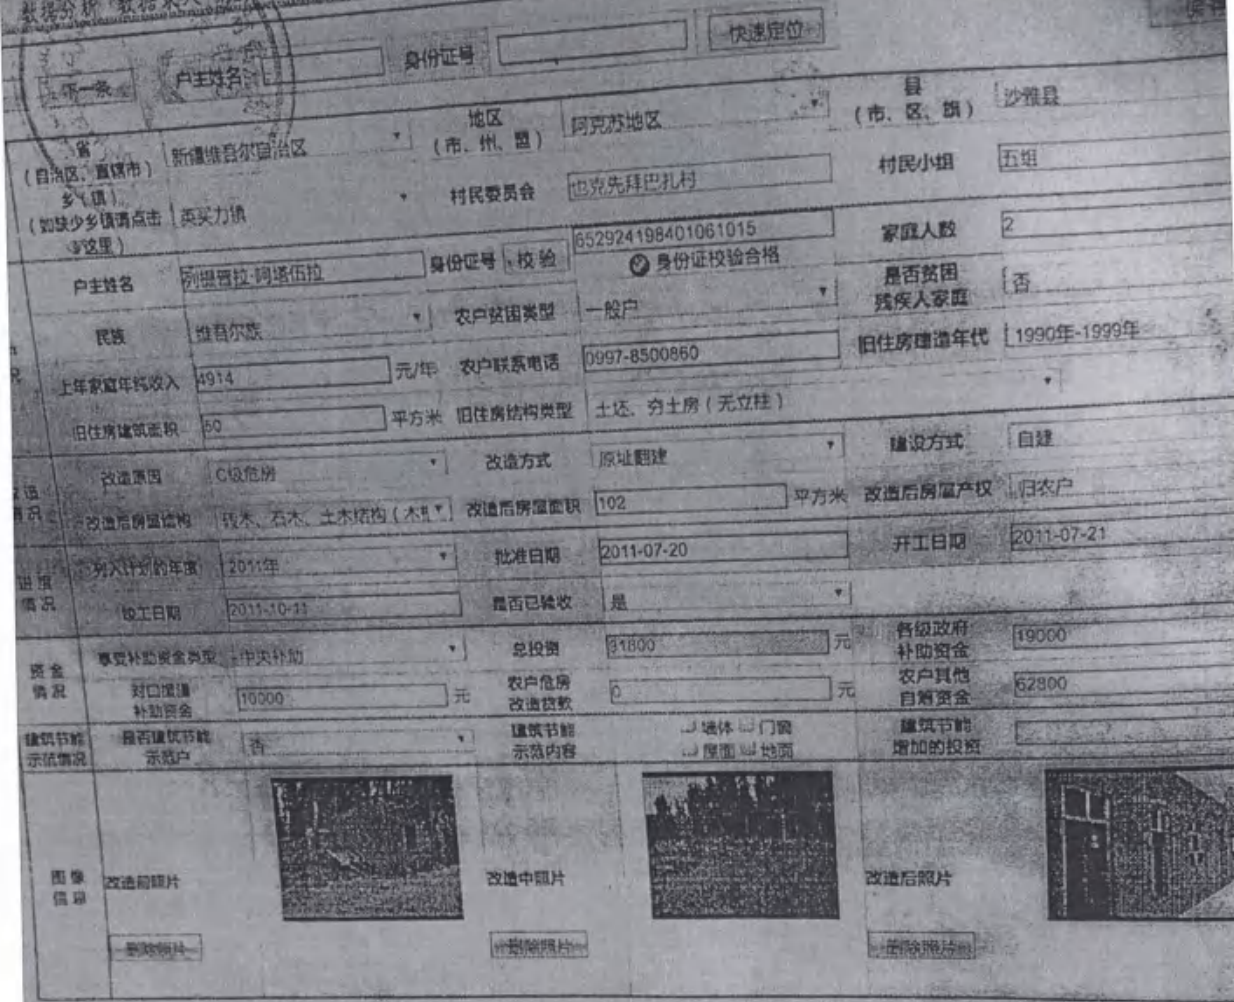 数据分析
下一条 户主姓名 身份证号 快速定位
省（自治区、直辖市） 新疆维吾尔自治区 地区（市、州、盟） 阿克苏地区 县（市、区、旗） 沙雅县
乡（镇）（如缺少乡镇请点击这里） 英买力镇 村民委员会 也克先拜巴扎村 村民小组 五组
户主姓名 身份证号 校验 652924198401061015 身份证校验合格 家庭人数 2
民族 维吾尔族 农户贫困类型 一般户 是否贫困残疾人家庭 否
上年家庭年纯收入 4914 元/年 农户联系电话 0997-8500860 旧住房建造年代 1990年-1999年
旧住房建筑面积 50 平方米 旧住房结构类型 土坯、夯土房（无立柱）
改造情况
改造原因 C级危房 改造方式 原址翻建 建设方式 自建
改造后房屋结构 砖木、石木、土木结构（木 改造后房屋面积 102 平方米 改造后房屋产权 归农户
进度情况
列入计划的年度 2011年 批准日期 2011-07-20 开工日期 2011-07-21
竣工日期 2011-10-11 是否已验收 是
资金情况
享受补助资金类型 中央补助 总投资 91800 元 各级政府补助资金 19000
对口援疆补助资金 10000 元 农户危房改造贷款 0 元 农户其他自筹资金 62800
建筑节能示范情况
是否建筑节能示范户 否 建筑节能示范内容 墙体 门窗 屋面 地面 建筑节能增加的投资
图像信息
改造前照片 改造中照片 改造后照片
删除照片 删除照片 删除照片